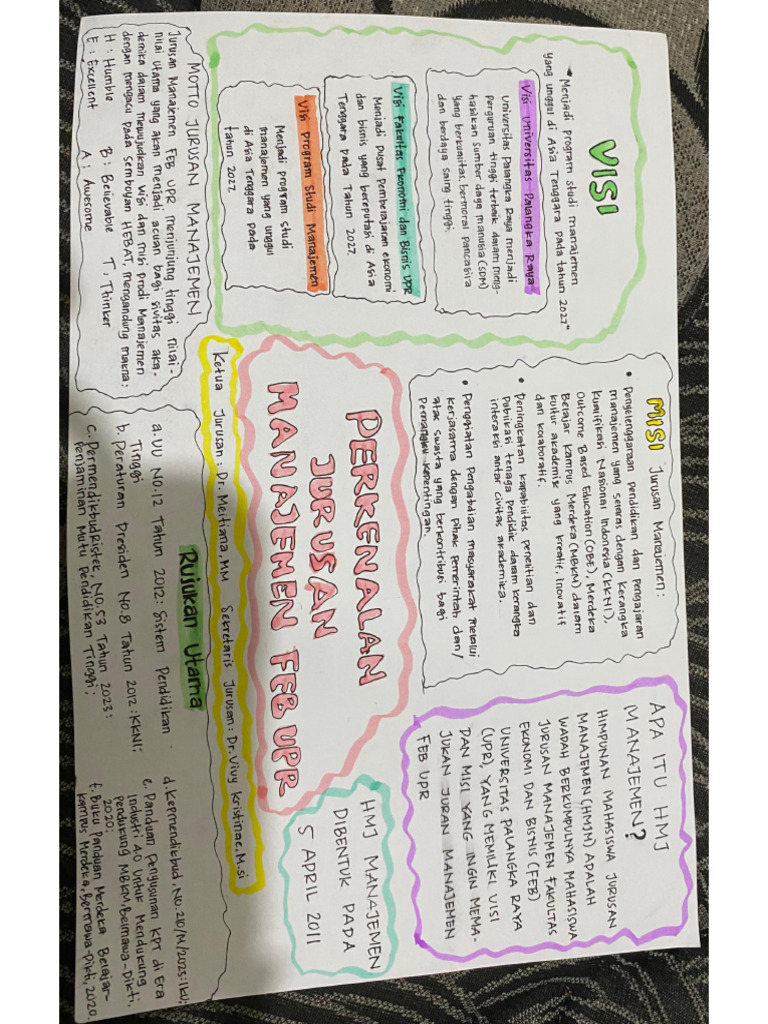 VISI
"Menjadi program studi manajemen
yang unggul di Asia Tenggara pada tahun 2027"
Visi Universitas Palangka Raya
Universitas Palangka Raya menjadi
perguruan tinggi terbaik dalam meng-
hasilkan sumber daya manusia (SDM)
yang berkualitas, bermoral pancasila
dan berdaya saing tinggi.
Visi Fakultas Ekonomi dan Bisnis UPR
Menjadi pusat Pembelajaran ekonomi
dan bisnis yang bereputasi di Asia
Tenggara pada Tahun 2027.
Visi Program Studi Manajemen
Menjadi program studi
manajemen yang unggul
di Asia Tenggara pada
tahun 2027.
MOTTO JURUSAN MANAJEMEN
Jurusan Manajemen FEB UPR menjunjung tinggi nilai-
nilai utama yang akan menjadi acuan bagi sivitas aka-
demika dalam mewujudkan visi dan misi Prodi Manajemen
dengan mengacu pada semboyan HEBAT, mengandung makna:
H : Humble B : Believable T : Thinker
E : Excellent A : Awesome
MISI Jurusan Manajemen :
• Penyelenggaraan pendidikan dan pengajaran
manajemen yang selaras dengan kerangka
Kualifikasi Nasional Indonesia (KKNI),
Outcome Based Education (OBE), Merdeka
Belajar Kampus Merdeka (MBKM) dalam
kultur akademik yang kreatif, Inovatif
dan kolaboratif.
• Peningkatan kapabilitas penelitian dan
Publikasi tenaga Pendidik dalam kerangka
interaksi antar civitas akademika.
• Penggiatan Pengabdian masyarakat melalui
kerjasama dengan pihak Pemerintah dan/
atau swasta yang berkontribusi bagi
Pemangku kepentingan.
PERKENALAN
JURUSAN
MANAJEMEN FEB UPR
Ketua Jurusan : Dr. Meitiana, MM Sekretaris Jurusan : Dr. Vivy Kristinae, M.si
APA ITU HMJ
MANAJEMEN?
HIMPUNAN MAHASISWA JURUSAN
MANAJEMEN (HMJM) APALAH
WADAH BERKUMPULNYA MAHASISWA
JURUSAN MANAJEMEN FAKULTAS
EKONOMI DAN BISNIS (FEB)
UNIVERSITAS PALANGKA RAYA
(UPR), YANG MEMILIKI VISI
DAN MISI YANG INGIN MEMA-
JUKAN JURAN MANAJEMEN
FEB UPR
HMJ MANAJEMEN
DIBENTUK PADA
5 APRIL 2011
Rujukan Utama
a. UU NO.12 Tahun 2012 : Sistem Pendidikan -
Tinggi
b. Peraturan Presiden NO.8 Tahun 2012 : KKNI;
c. Permendikbudristek, NO.53 Tahun 2023 :
Penjaminan Mutu Pendidikan Tinggi;
d. Kepmendikbud. NO.210/M/2023 : IKU;
e. Panduan Penyusunan KPT di Era
Industri 4.0 Untuk Mendukung
Pendukung MBKM, Belmawa-Dikti.
2020.
f. Buku Panduan Merdeka Belajar-
Kampus Merdeka, Belmawa-Dikti, 2020.